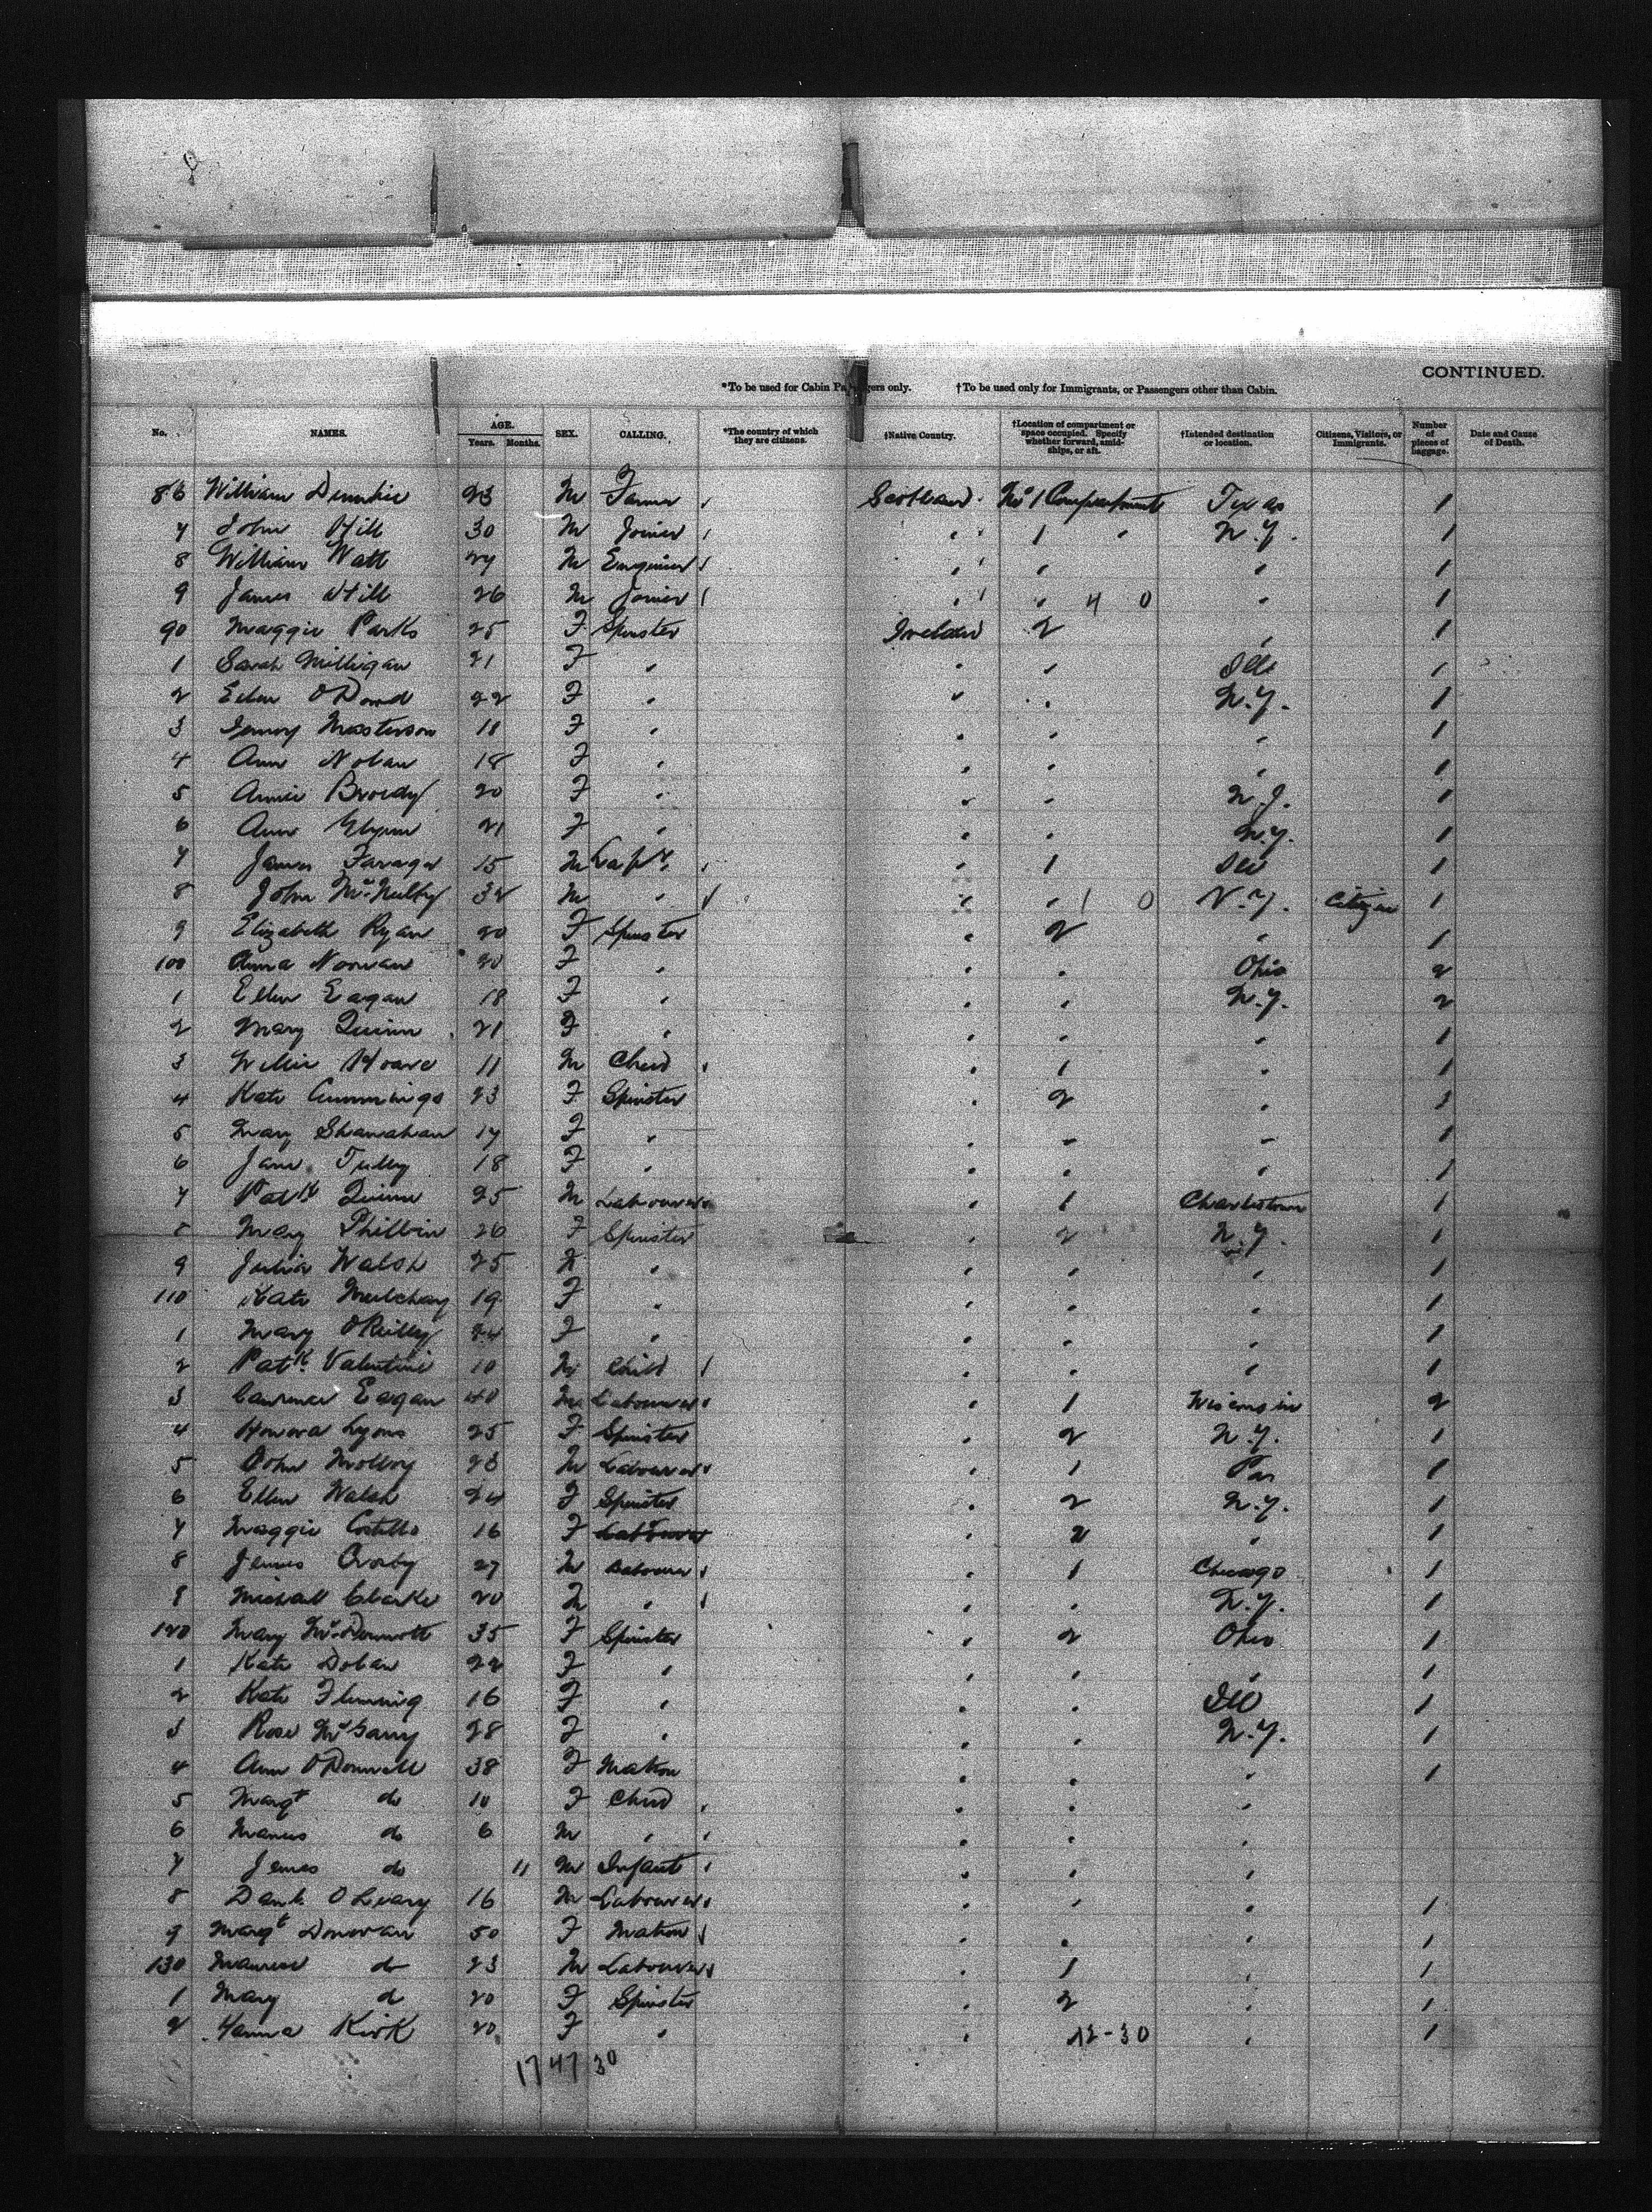 CONTINUED.
*To be used for Cabin Passengers only. †To be used only for Immigrants, or Passengers other than Cabin.
No. NAMES. AGE. Years. Months. SEX. CALLING. *The country of which they are citizens. †Native Country. †Location of compartment or space occupied. Specify whether forward, amidships, or aft. †Intended destination or location. Citizens, Visitors, or Immigrants. Number of pieces of baggage. Date and Cause of Death.
86 William 23 M Farmer Scotland No 1 Compartment Texas 1
7 John Hill 30 M Joiner " 1 " N.Y. 1
8 William Watt 27 M Engineer " " " 1
9 James Hill 26 M Joiner " " 4 0 " 1
90 Maggie Parks 25 F Spinster Ireland 2 " 1
1 Sarah Milligan 21 F " " " Ills 1
2 Ellen O'Dowd 22 F " " " N.Y. 1
3 Masterson 18 F " " " " 1
4 Ann Nolan 18 F " " " " 1
5 Annie Brordy 20 F " " " N.J. 1
6 Ann Glynn 21 F " " " N.Y. 1
7 James 15 M " 1 Ill 1
8 John McNulty 32 M " " " 1 0 N.Y. Citizen 1
9 Elizabeth Ryan 20 F Spinster " 2 " 1
100 Anna Noonan 20 F " " " Ohio 2
1 Ellen Eagan 18 F " " " N.Y. 2
2 Mary Quinn 21 F " " " " 1
3 Willie Hoare 11 M Child " 1 " 1
4 Kate Cummings 23 F Spinster " 2 "
5 Mary Shanahan 17 F " " " " 1
6 Jane Tully 18 F " " " " 1
7 Patk Quinn 25 M Labourer " 1 Charlestown 1
8 Mary Philbin 26 F Spinster " 2 N.Y. 1
9 Julia Walsh 25 F " " " " 1
110 Kate Mulchay 19 F " " " " 1
1 Mary O'Reilly 24 F " " " " 1
2 Patk Valentine 10 M Child " " " 1
3 Laurence Eagan 40 M Labourer " 1 Wisconsin 2
4 Honora Lyons 25 F Spinster " 2 N.Y. 1
5 John Molloy 23 M Labourer " 1 Pa 1
6 Ellen Walsh 24 F Spinster " 2 N.Y. 1
7 Maggie Costello 16 F Labourer " 2 " 1
8 James Crosby 27 M Labourer " 1 Chicago 1
9 Michael Clarke 20 M " " " N.Y. 1
120 Mary McDermott 35 F Spinster " 2 Ohio 1
1 Kate Dolan 22 F " " " " 1
2 Kate Flemming 16 F " " " Ill 1
3 Rose McGarry 28 F " " " N.Y. 1
4 Ann O'Donnell 38 F Matron " " " 1
5 Margt do 10 F Child " " "
6 Manus do 6 M " " " "
7 James do 11 M Infant " " "
8 Danl. O'Leary 16 M Labourer " " " 1
9 Margt Donovan 50 F Matron " " " 1
130 Maurice do 23 M Labourer " 1 " 1
1 Mary do 20 F Spinster " 2 " 1
2 Hanna Kirk 20 F " " 12-30 " 1
17 47 30